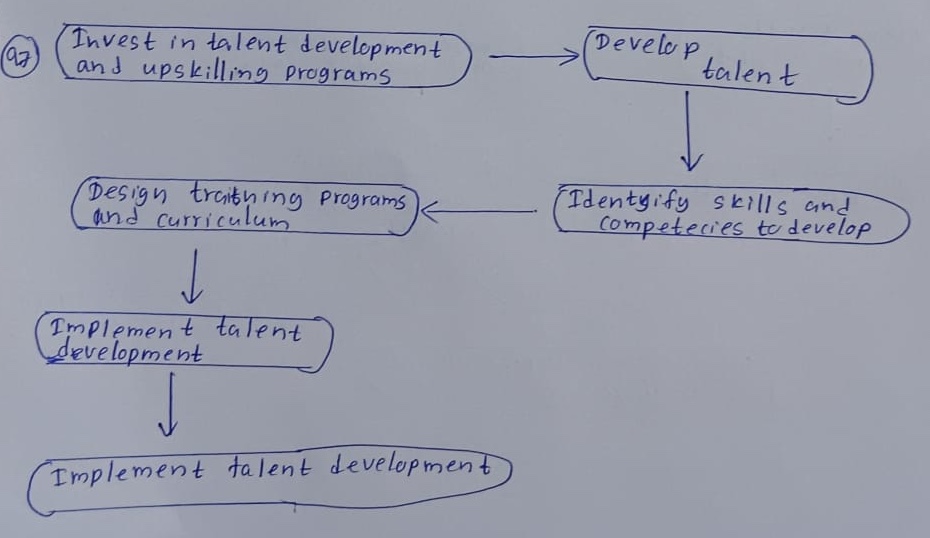 97
Invest in talent development
and upskilling programs
Develop
talent
Identyify skills and
competecies to develop
Design traithing programs
and curriculum
Implement talent
development
Implement talent development